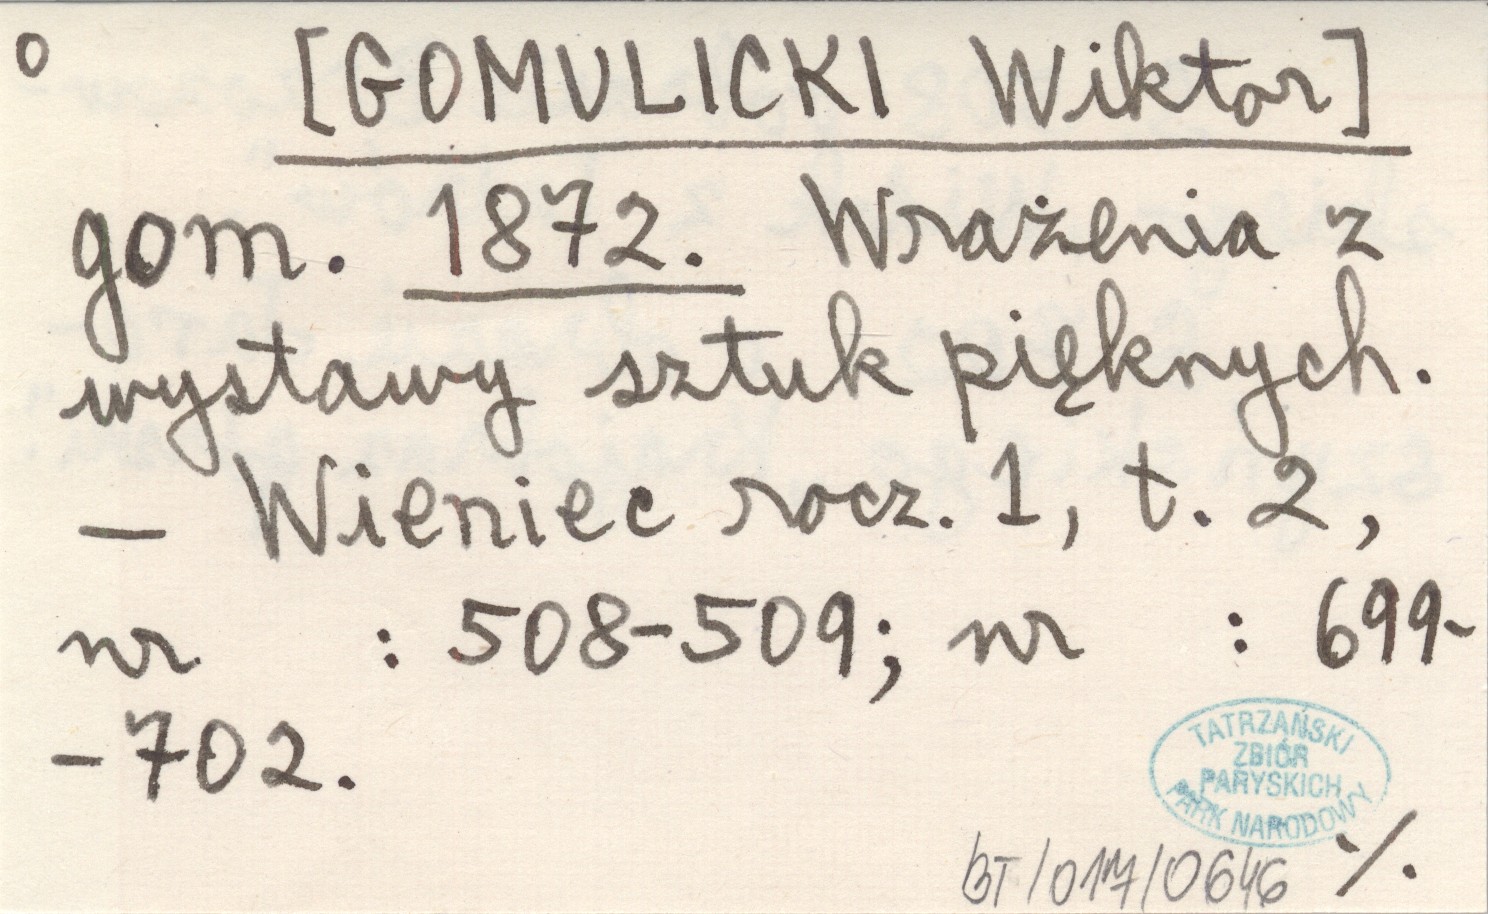 o [GOMULICKI Wiktor]
gom. 1872. Wrażenia z
wystawy sztuk pięknych.
— Wieniec rocz. 1, t. 2,
nr : 508-509; nr : 699-
-702.
TATRZAŃSKI
ZBIÓR
PARYSKICH
PARK NARODOWY
BT/017/0646 ·/.